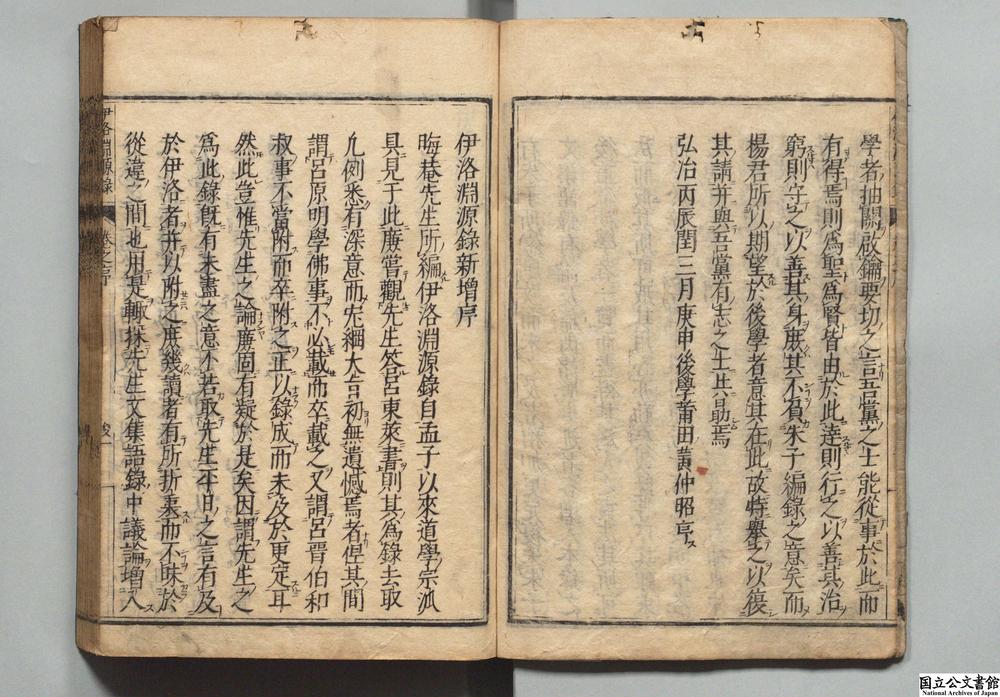 學者抽關啟鑰要切之言吾黨之士能從事於此而
有得焉則爲聖爲賢皆由於此達則行之以善其治
窮則守之以善其身庶其不負朱子編錄之意矣而
楊君所以期望於後學者意其在此故特舉之以復
其請并與吾黨有志之士共勗焉
弘治丙辰閏三月庚申後學莆田黃仲昭序
伊洛淵源錄新增序
晦菴先生所編伊洛淵源錄自孟子以來道學宗派
具見于此廉嘗觀先生答呂東萊書則其爲錄去取
凡例悉有深意而宏綱大旨初無遺憾焉者但其間
謂呂原明學佛事不必載而卒載之又謂呂晋伯和
叔事不當附而卒附之正以錄成而未及於更定耳
然此豈惟先生之論廉固有疑於是矣因謂先生之
爲此錄旣有未盡之意不若取先生平日之言有及
於伊洛者并以附之庶幾讀者有所折衷而不昧於
從違之間也用是輒採先生文集語錄中議論增入
伊洛淵源錄
序
國立公文書館
National Archives of Japan